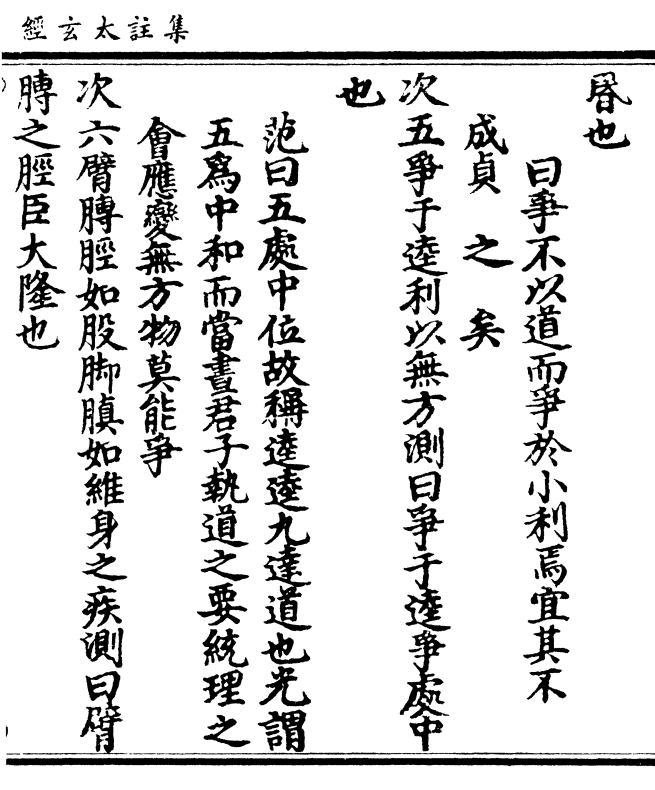 集註太玄經
昬也
曰爭不以道而爭於小利焉宜其不
成貞 之 矣
次五爭于逵利以無方測曰爭于逵爭處中
也
范曰五處中位故稱逵逵九達道也光謂
五爲中和而當晝君子執道之要統理之
會應變無方物莫能爭
次六臂膊脛如股脚䐜如維身之疾測曰臂
膊之脛臣大隆也